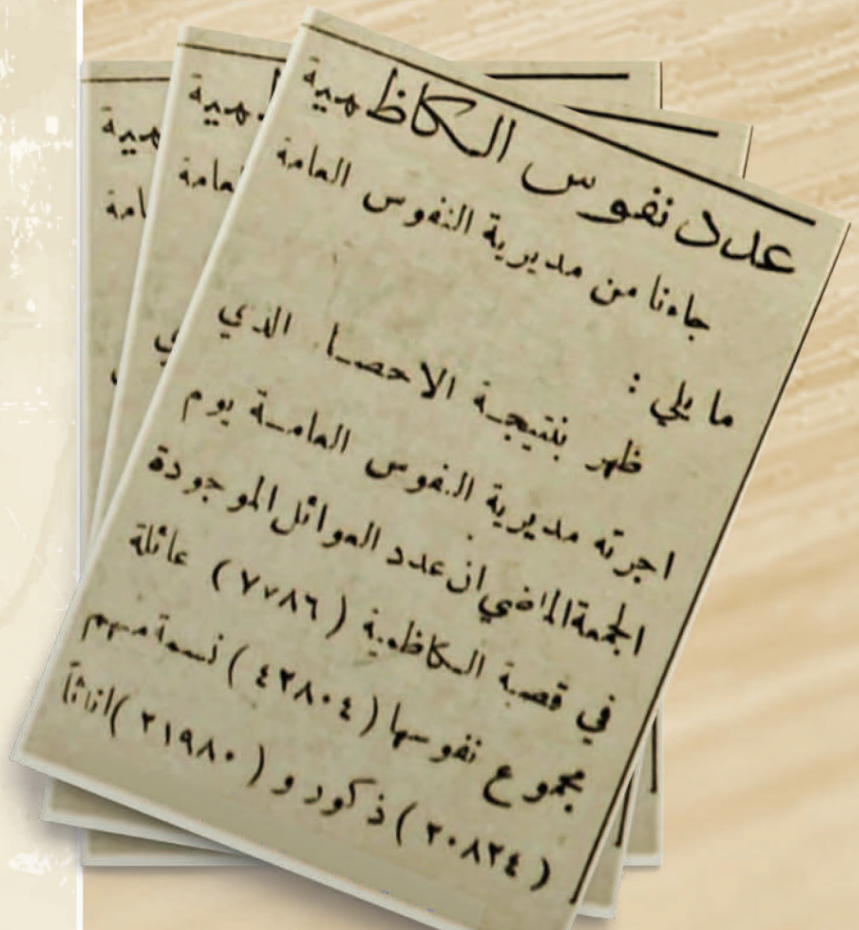 عدد نفوس الكاظمية
جاءنا من مديرية النفوس العامة
ما يلي :
ظهر بنتيجة الاحصاء الذي
اجرته مديرية النفوس العامة يوم
الجمعة الماضي ان عدد العوائل الموجودة
في قصبة الكاظمية ( ٧٧٨٦ ) عائلة
مجموع نفوسها ( ٤٢٨٠٤ ) نسمة منهم
( ٢٠٨٢٤ ) ذكور و ( ٢١٩٨٠ ) اناثاً